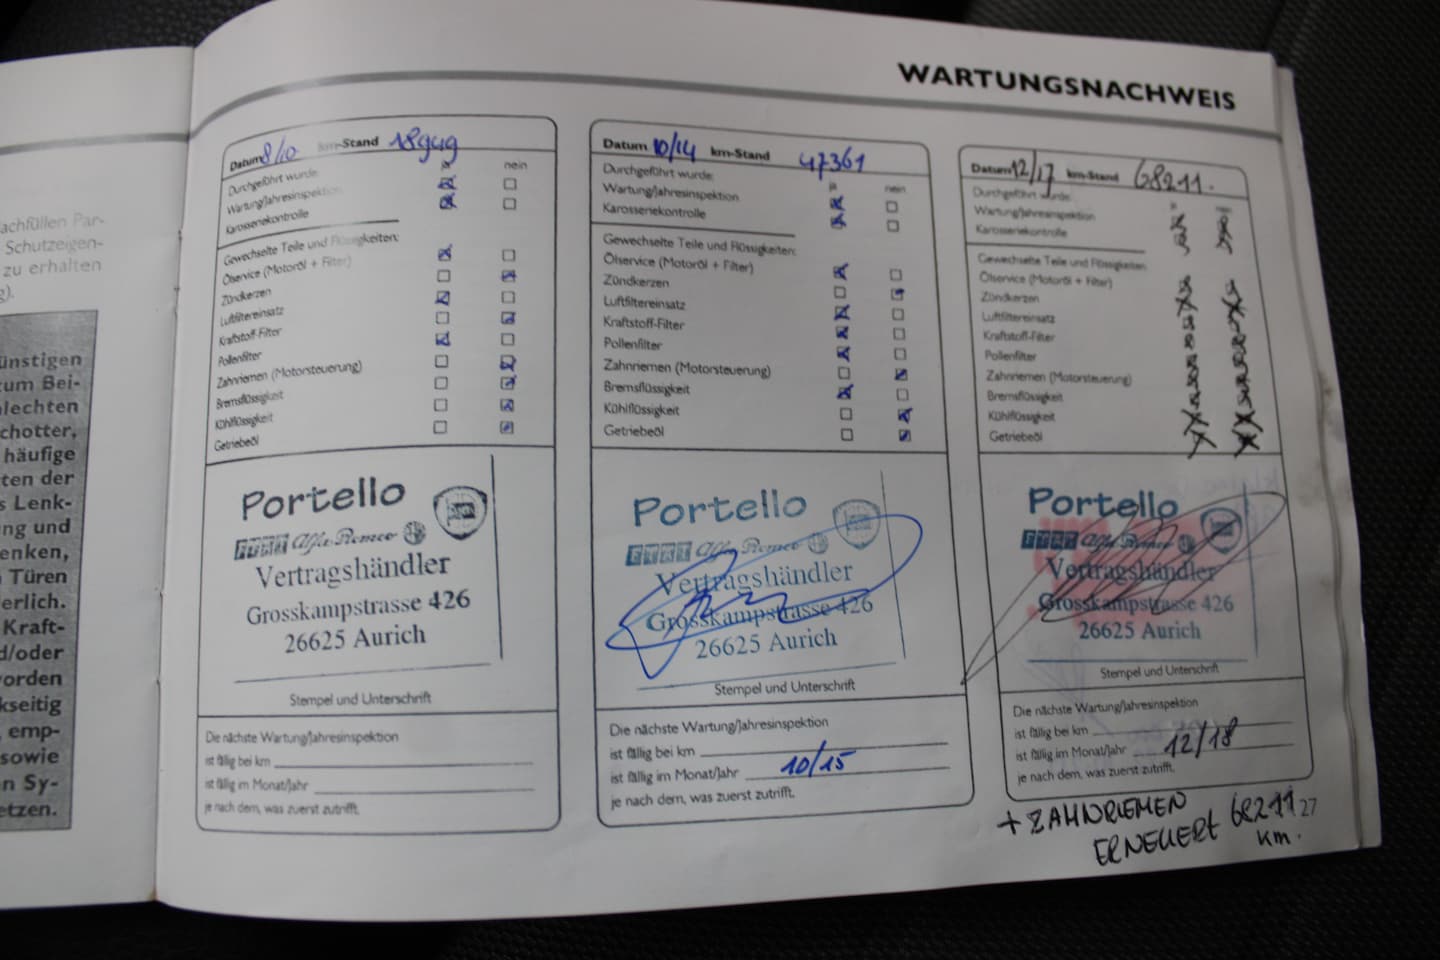 achfüllen Par-
Schutzeigen-
zu erhalten
g).
ünstigen
zum Bei-
hlechten
chotter,
häufige
ten der
s Lenk-
ng und
enken,
Türen
erlich.
Kraft-
d/oder
vorden
kseitig
, emp-
sowie
n Sy-
etzen.
WARTUNGSNACHWEIS
Datum 8/10 km-Stand 18949
ja nein
Durchgeführt wurde:
Wartung/Jahresinspektion
Karosseriekontrolle
Gewechselte Teile und Flüssigkeiten:
Ölservice (Motoröl + Filter)
Zündkerzen
Luftfiltereinsatz
Kraftstoff-Filter
Pollenfilter
Zahnriemen (Motorsteuerung)
Bremsflüssigkeit
Kühlflüssigkeit
Getriebeöl
Portello
FIAT Alfa Romeo
Vertragshändler
Grosskampstrasse 426
26625 Aurich
Stempel und Unterschrift
Die nächste Wartung/Jahresinspektion
ist fällig bei km
ist fällig im Monat/Jahr
je nach dem, was zuerst zutrifft.
Datum 10/14 km-Stand 47361
ja nein
Durchgeführt wurde:
Wartung/Jahresinspektion
Karosseriekontrolle
Gewechselte Teile und Flüssigkeiten:
Ölservice (Motoröl + Filter)
Zündkerzen
Luftfiltereinsatz
Kraftstoff-Filter
Pollenfilter
Zahnriemen (Motorsteuerung)
Bremsflüssigkeit
Kühlflüssigkeit
Getriebeöl
Portello
FIAT Alfa Romeo
Vertragshändler
Grosskampstrasse 426
26625 Aurich
Stempel und Unterschrift
Die nächste Wartung/Jahresinspektion
ist fällig bei km
ist fällig im Monat/Jahr 10/15
je nach dem, was zuerst zutrifft.
Datum 12/17 km-Stand 68211.
ja nein
Durchgeführt wurde:
Wartung/Jahresinspektion
Karosseriekontrolle
Gewechselte Teile und Flüssigkeiten:
Ölservice (Motoröl + Filter)
Zündkerzen
Luftfiltereinsatz
Kraftstoff-Filter
Pollenfilter
Zahnriemen (Motorsteuerung)
Bremsflüssigkeit
Kühlflüssigkeit
Getriebeöl
Portello
FIAT Alfa Romeo
Vertragshändler
Grosskampstrasse 426
26625 Aurich
Stempel und Unterschrift
Die nächste Wartung/Jahresinspektion
ist fällig bei km
ist fällig im Monat/Jahr 12/18
je nach dem, was zuerst zutrifft.
27
+ ZAHNRIEMEN
ERNEUERT 68211
km.